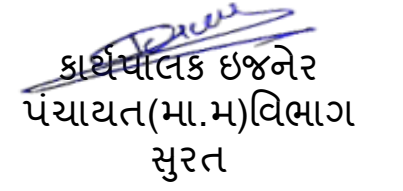 કાર્યપાલક ઇજનેર
પંચાયત(મા.મ)વિભાગ
સુરત